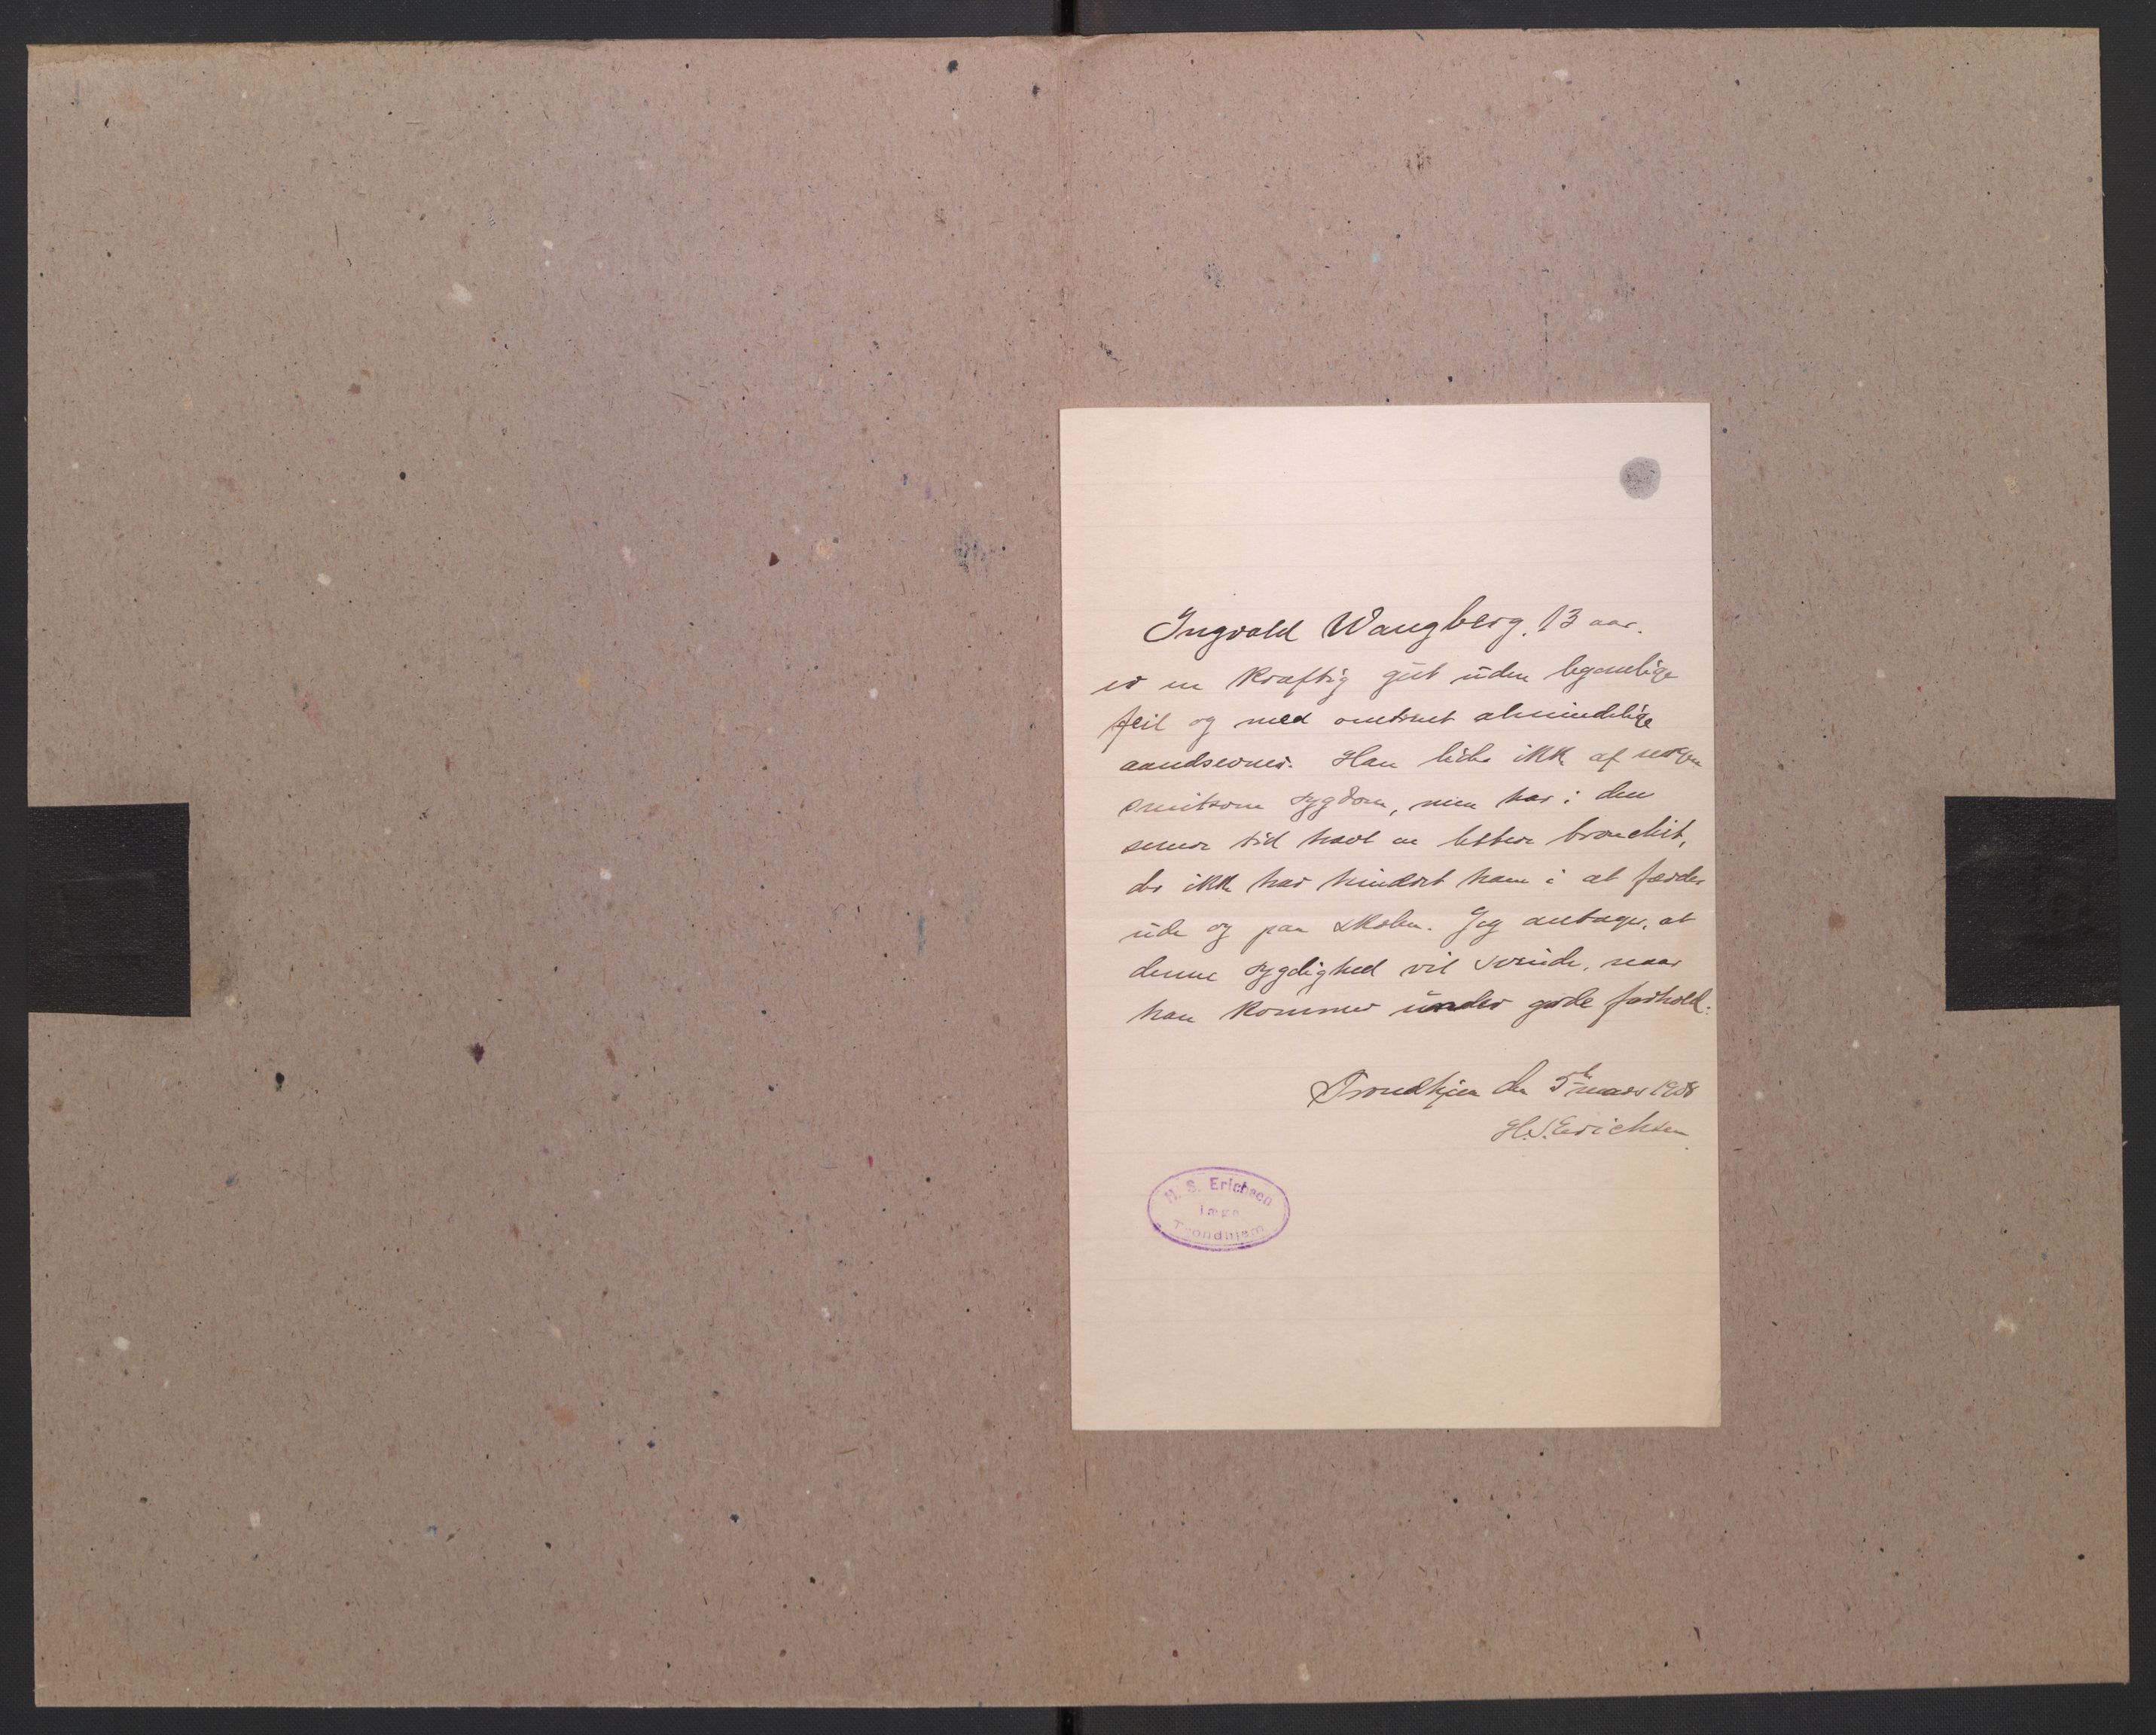 Ingvald Wangberg. 13 aar.
er en kraftig gut uden legemlige
feil og med omtrent almindelige
aandsevner. Han lider ikke af nogen
smitsom sygdom, men har i den
senere tid havt en lettere bronchit,
der ikke har hindret ham i at færdes
ude og paa skolen. Jeg antager, at
denne sygelighed vil svinde, naar
han kommer under gode forhold.
Trondhjem den 5te mars 1908
H.S. Erichsen
H. S. Erichsen
læge
Trondhjem